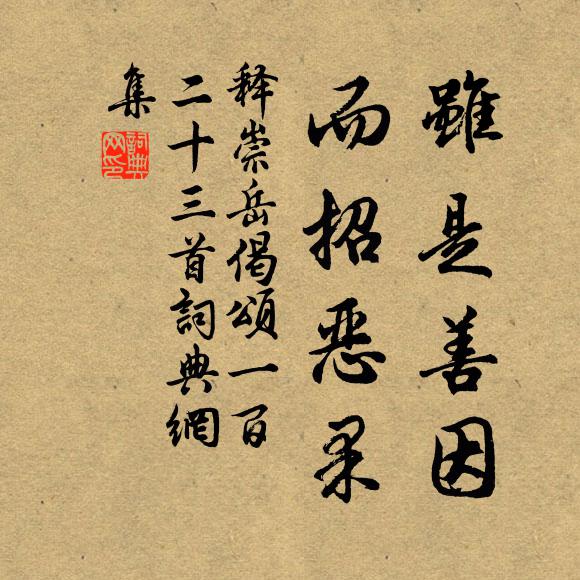 雖是善因
而招恶果
释崇岳偈頌一百
二十三首詞典網
集
詞典
网印